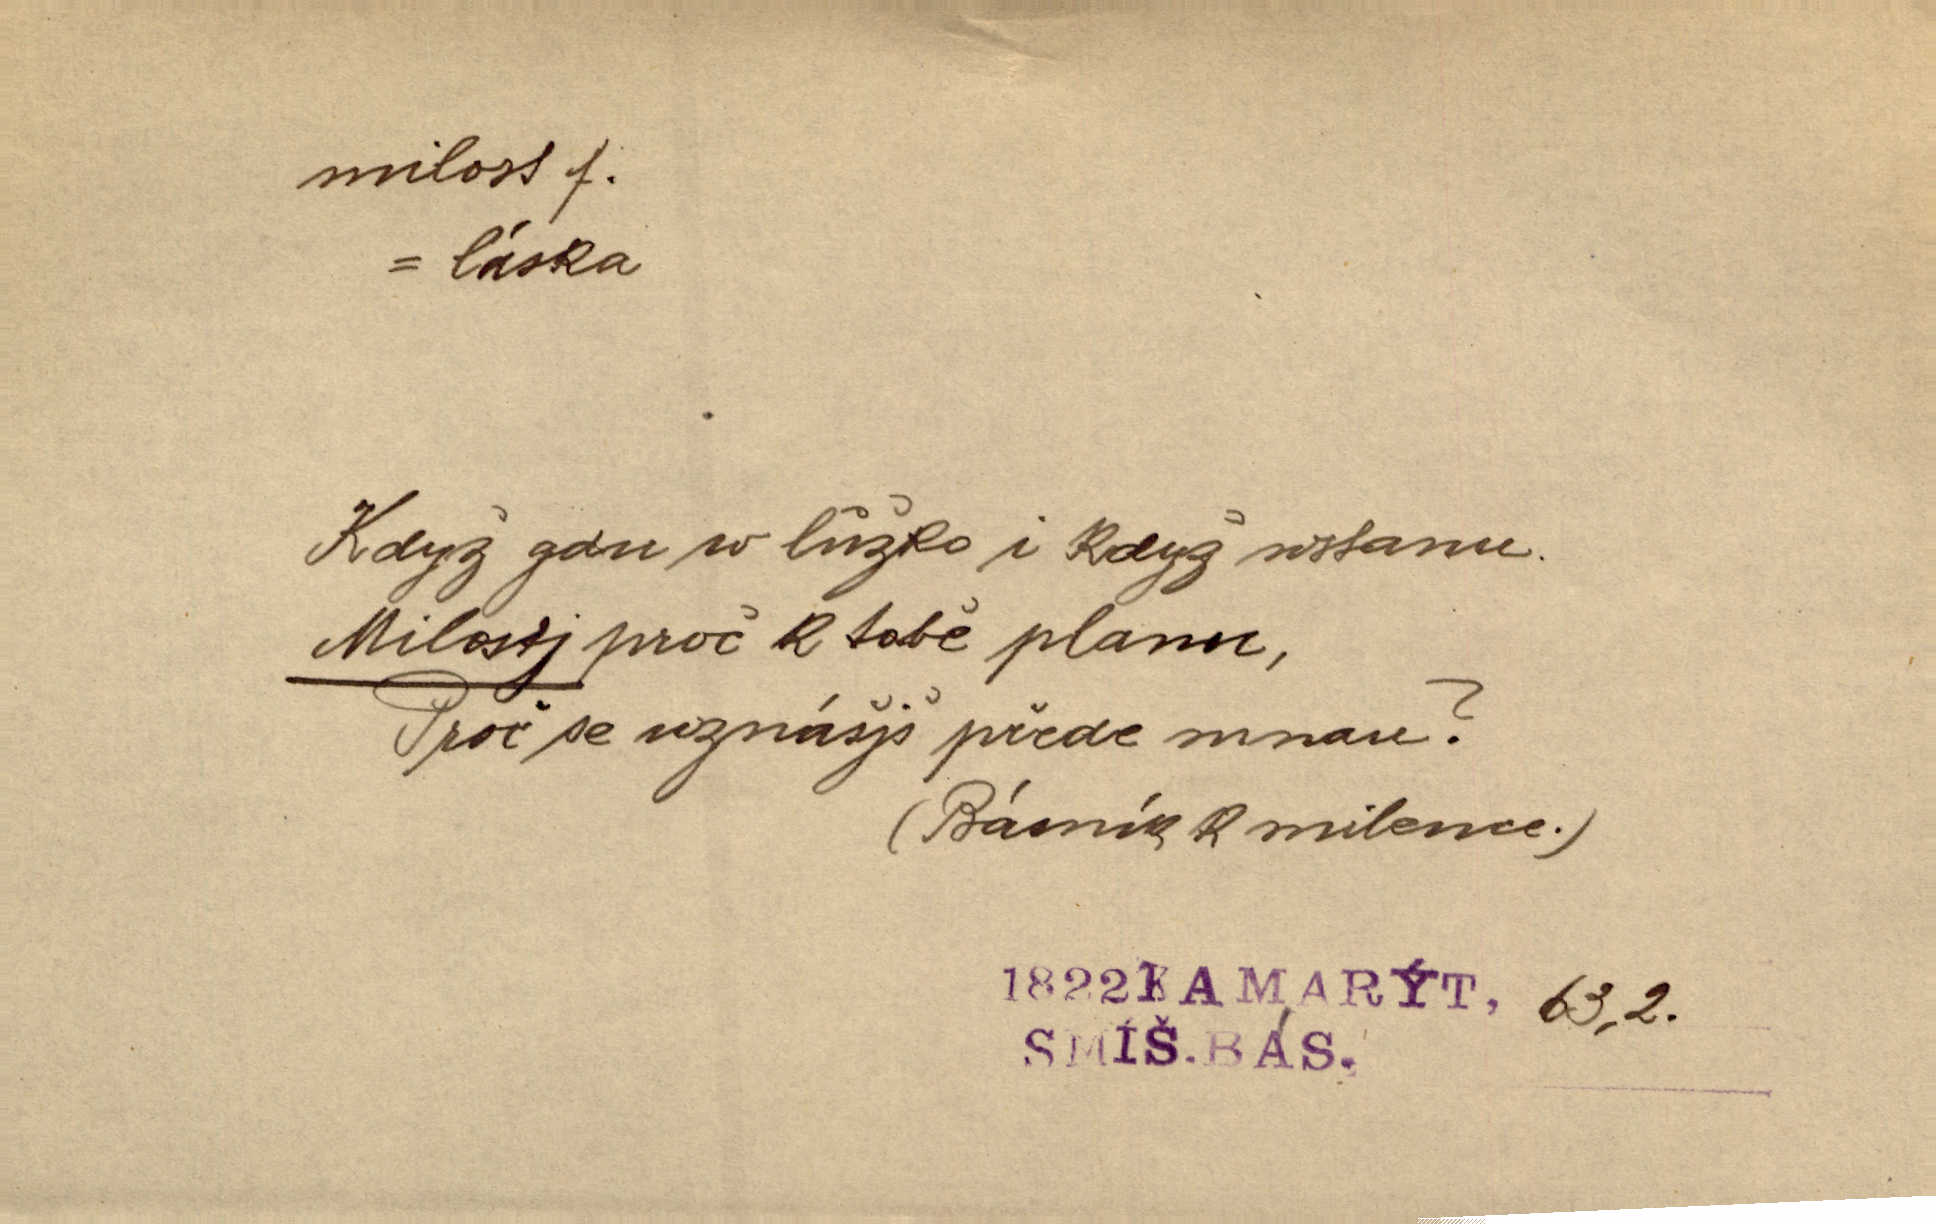 milost f.
= láska
Když gdu w lůžko i když wstanu.
Milostj proč k tobě planu,
Proč se wznášjš přede mnau?
(Básník k milence.)
1822 KAMARÝT, 63,2.
SMÍŠ.BÁS.